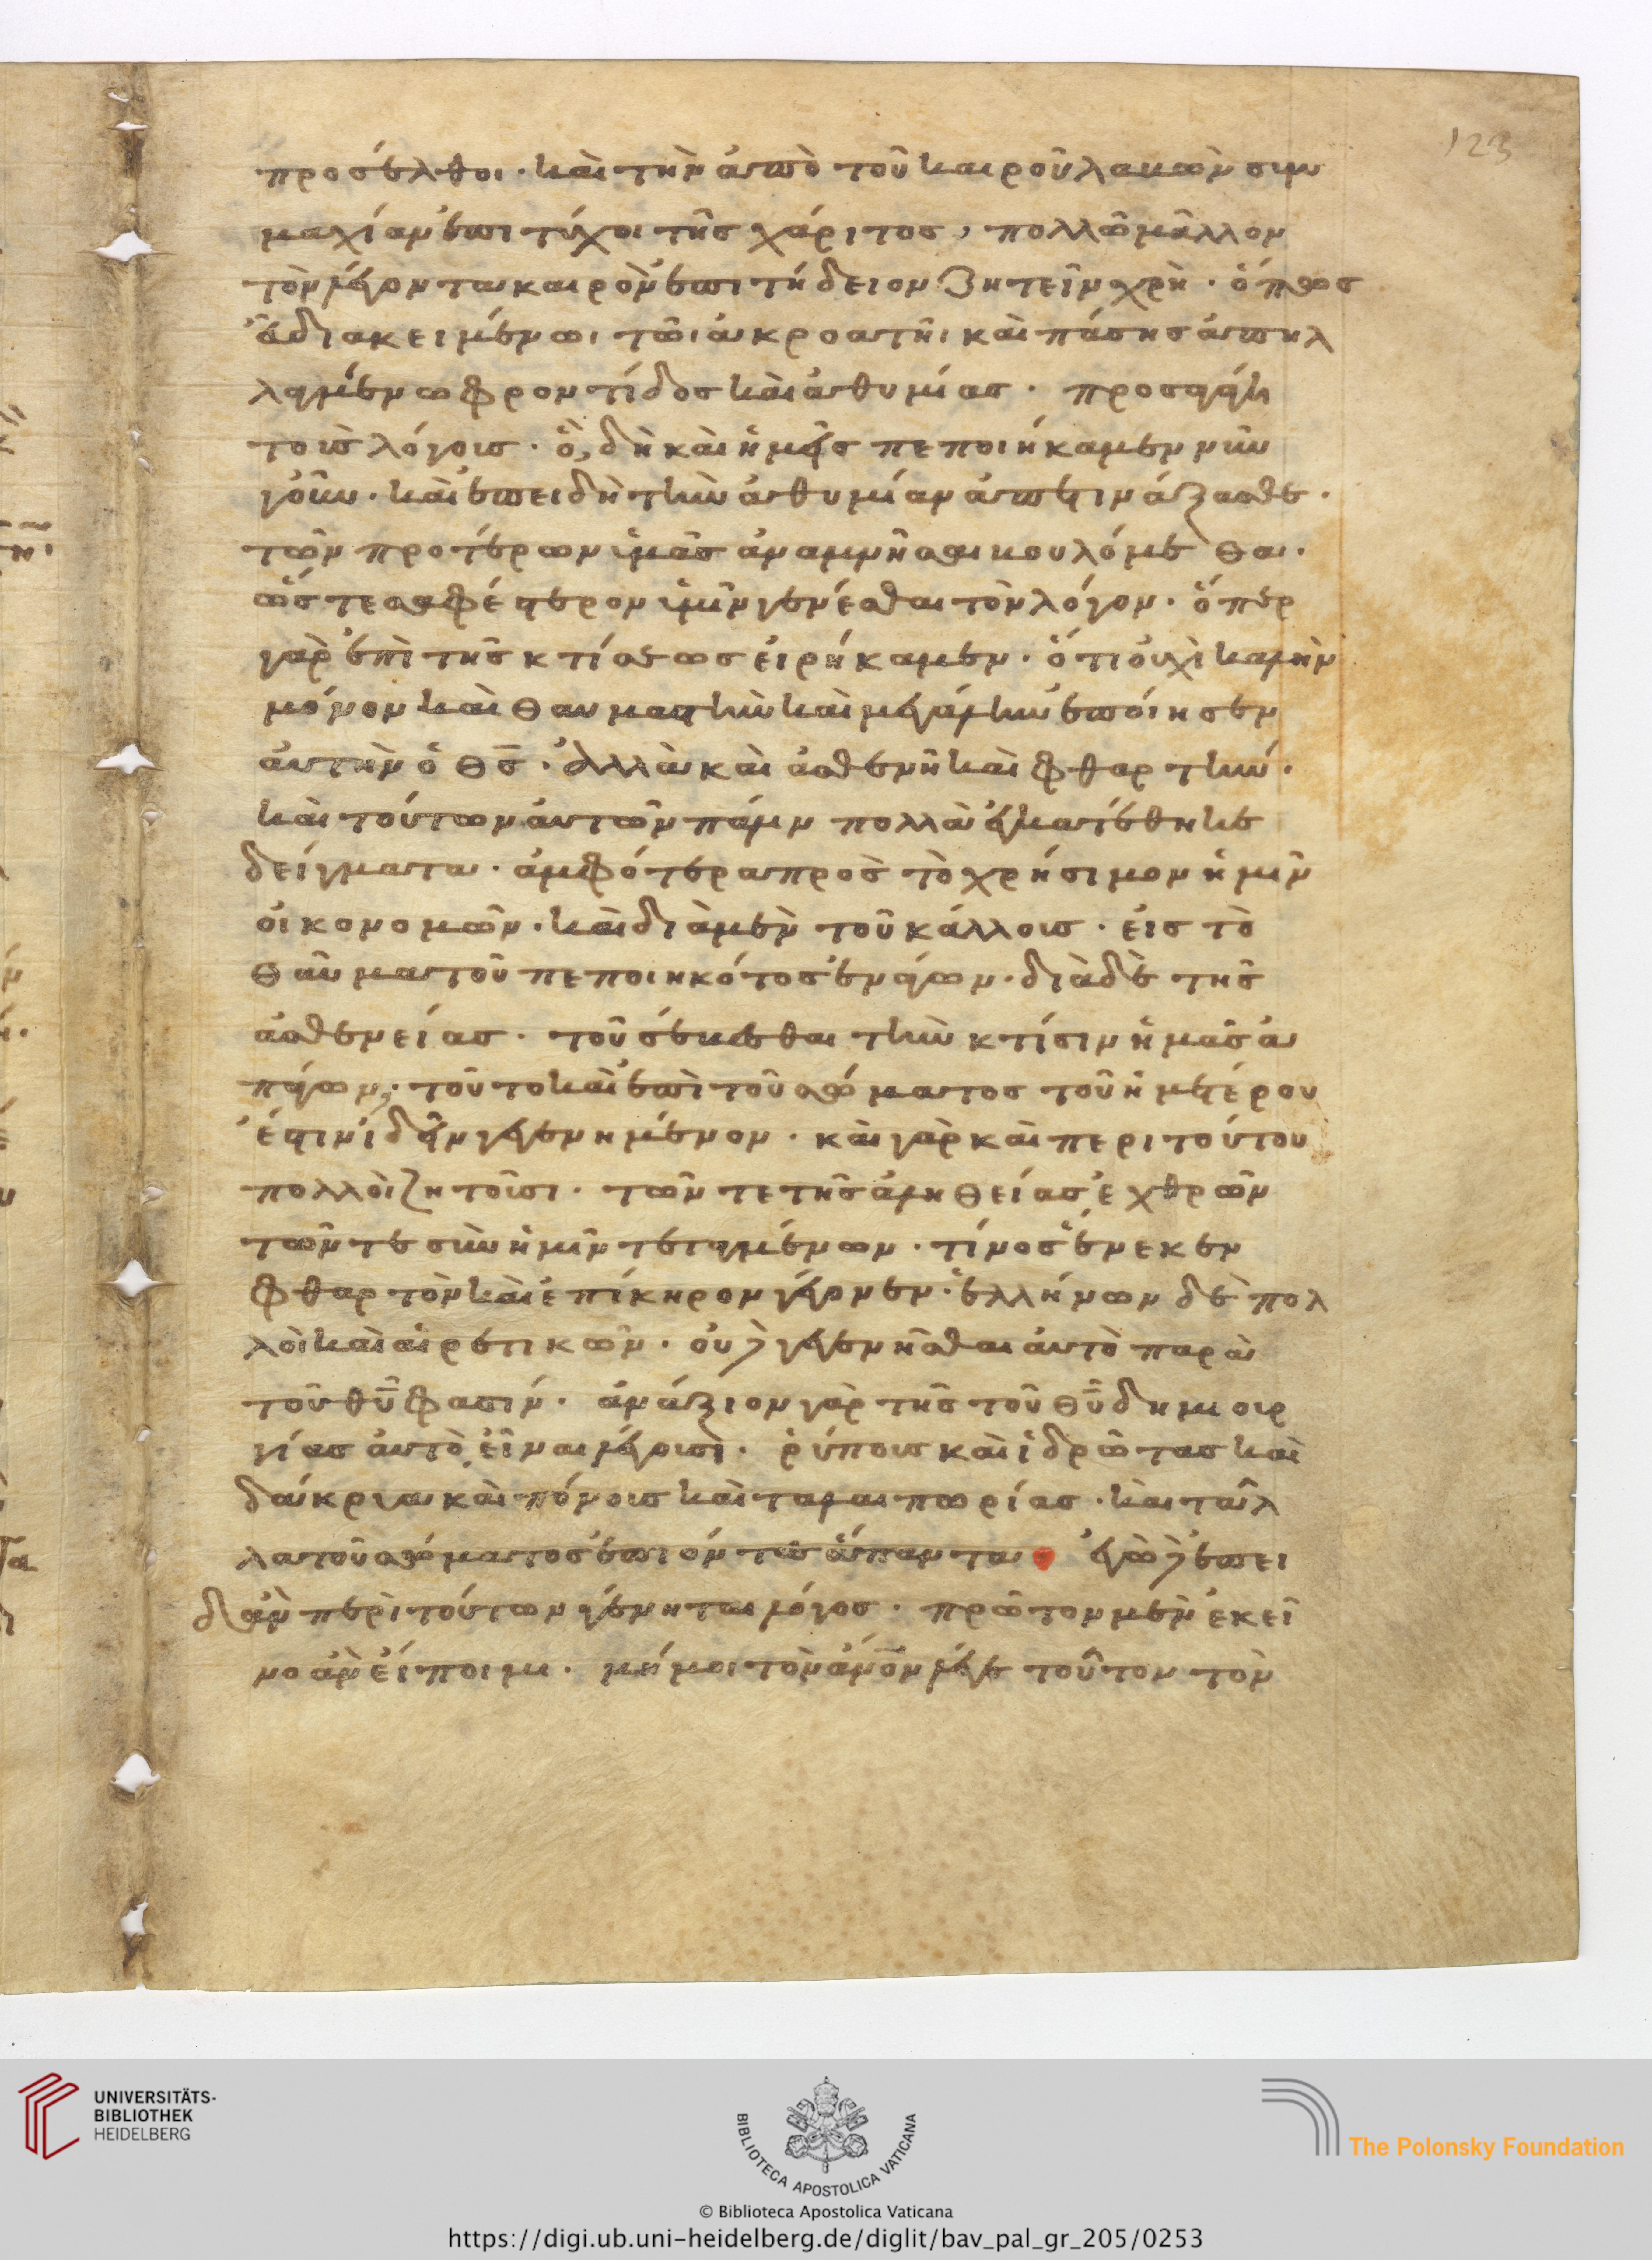 123
προσέλθοι. καὶ τὴν ἀπὸ τοῦ καιροῦ λαβὼν συμ
μαχίαν ἐπιτύχοι τῆς χάριτος, πολλῶ μᾶλλον
τὸν λέγοντα καιρὸν ἐπιτήδειον ζητεῖν χρὴ. ὅπως
εὖ διακειμένωι τῶι ἀκροατῆι καὶ πάσης ἀπηλ
λαγμένω φροντίδος καὶ ἀθυμίας. προσαγάγη
τοὺς λόγους. ὃ, δὴ καὶ ἡμεῖς πεποιήκαμεν νῦν
γοῦν. καὶ ἐπειδὴ τὴν ἀθυμίαν ἀπετινάξασθε.
τῶν προτέρων ὑμᾶς ἀναμνῆσαι βουλόμεθα.
ὥστε σαφέστερον ὑμῖν γενέσθαι τὸν λόγον. ὅπερ
γὰρ ἐπὶ τῆς κτίσεως εἰρήκαμεν. ὅτι οὐχὶ καλὴν
μόνον καὶ θαυμαστὴν καὶ μεγάλην ἐποίησεν
αὐτὴν ὁ θς. ἀλλὰ καὶ ἀσθενῆ καὶ φθαρτήν.
καὶ τούτων αὐτῶν πάλιν πολλὰ ἐγκατέθηκε
δείγματα. ἀμφότερα πρὸς τὸ χρήσιμον ἡμῖν
οἰκονομῶν. καὶ διὰ μὲν τοῦ κάλλους. εἰς τὸ
θαῦμα τοῦ πεποιηκότος ἐνάγων. διὰ δὲ τῆς
ἀσθενείας. τοῦ σέβεσθαι τὴν κτίσιν ἡμᾶς ἀ
πάγων, τοῦτο καὶ ἐπὶ τοῦ σώματος τοῦ ἡμετέρου
ἔστιν ἰδεῖν γεγενημένον. καὶ γὰρ καὶ περι τούτου
πολλοὶ ζητοῦσι. τῶν τε τῆς ἀληθείας ἐχθρῶν
τῶν τε σὺν ἡμῖν τεταγμένων. τίνος ἕνεκεν
φθαρτὸν καὶ ἐπίκηρον γέγονεν. ἑλλήνων δὲ πολ
λοὶ καὶ αἱρετικῶν. οὐδὲ γεγενῆσθαι αὐτὸ παρὰ
τοῦ θῦ φασιν. ἀνάξιον γὰρ τῆς τοῦ θῦ δημιουρ
γίας αὐτὸ εἶναι λέγουσι. ῥύπους καὶ ἱδρῶτας καὶ
δάκρυα καὶ πόνους καὶ ταλαιπωρίας. καὶ τἆλ
λα τοῦ σώματος ἐπιόντες ἅπαντα ἐγὼ δὲ ἐπει
δὰν περὶ τούτων γένηται λόγος. πρῶτον μὲν ἐκεῖ
νο ἂν εἴποιμι. μή μοι τὸν ἀνον λέγε τοῦτον τὸν
UNIVERSITÄTS-
BIBLIOTHEK
HEIDELBERG
BIBLIOTECA APOSTOLICA VATICANA
The Polonsky Foundation
© Biblioteca Apostolica Vaticana
https://digi.ub.uni-heidelberg.de/diglit/bav_pal_gr_205/0253